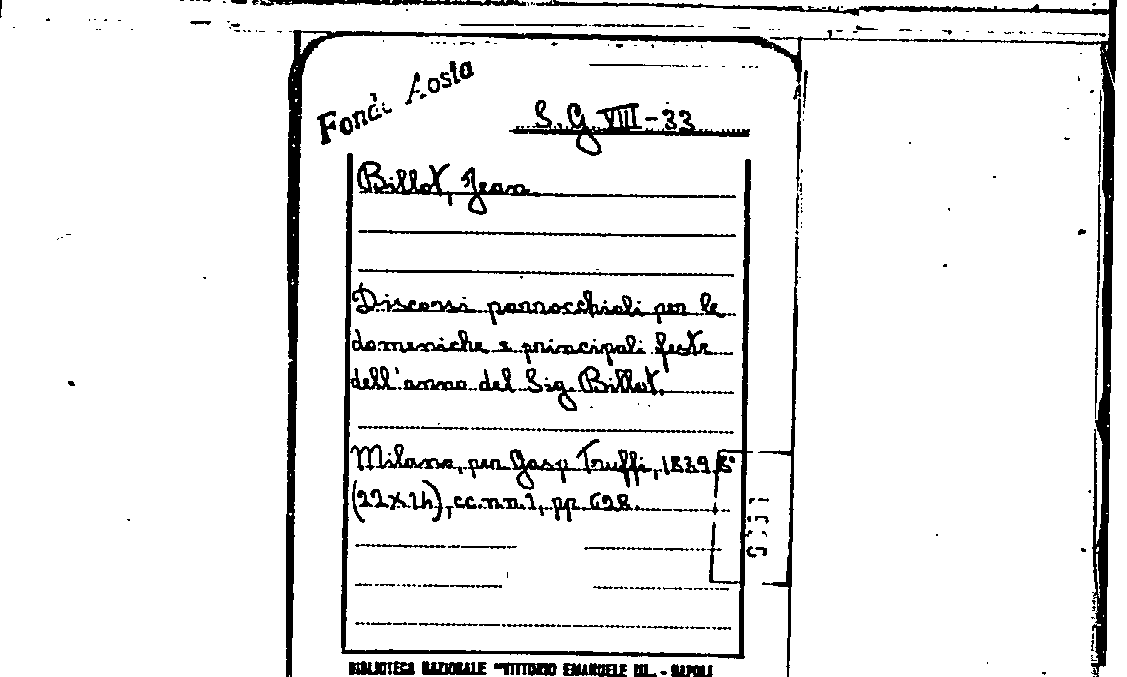 Fondo Aosta
S. G VIII-33
Billot, Jean.
Discorsi parrocchiali per le
domeniche e principali feste
dell'anno del Sig. Billot.
Milano, per Gasp Truffi, 1839, 8°
(22x14), cc.nn.1, pp. 628.
BIBLIOTECA NAZIONALE "VITTORIO EMANUELE III. - NAPOLI